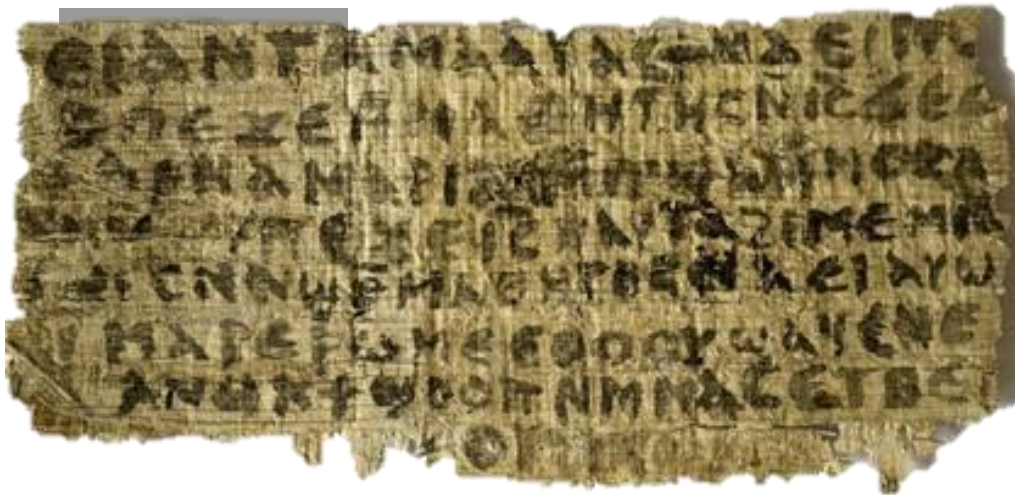 ⲉⲓ ⲁⲛ ⲧⲁⲙⲁⲁⲩ ⲁⲥϯ ⲛⲁⲉⲓ
ⲡⲉϫⲉ ⲙⲙⲁⲑⲏⲧⲏⲥ ⲛⲓ̅ⲥ̅ ϫⲉ ⲥ
ⲁⲣⲛⲁ ⲙⲁⲣⲓⲁⲙ
ⲡⲉϫⲉ ⲓ̅ⲥ̅ ⲛⲁⲩ ⲧⲁϩⲓⲙⲉ ⲙⲛ
ⲥⲛⲁϣⲣⲙⲁⲑⲏⲧⲏⲥ ⲛⲁⲉⲓ ⲁⲩⲱ
ⲓ ⲙⲁⲣⲉⲣⲱⲙⲉ ⲉⲑⲟⲟⲩ ϣⲁϥⲉ ⲛⲉ
ⲁⲛⲟⲕ ϯϣⲟⲟⲡ ⲛⲙⲙⲁⲥ ⲉⲧⲃⲉ